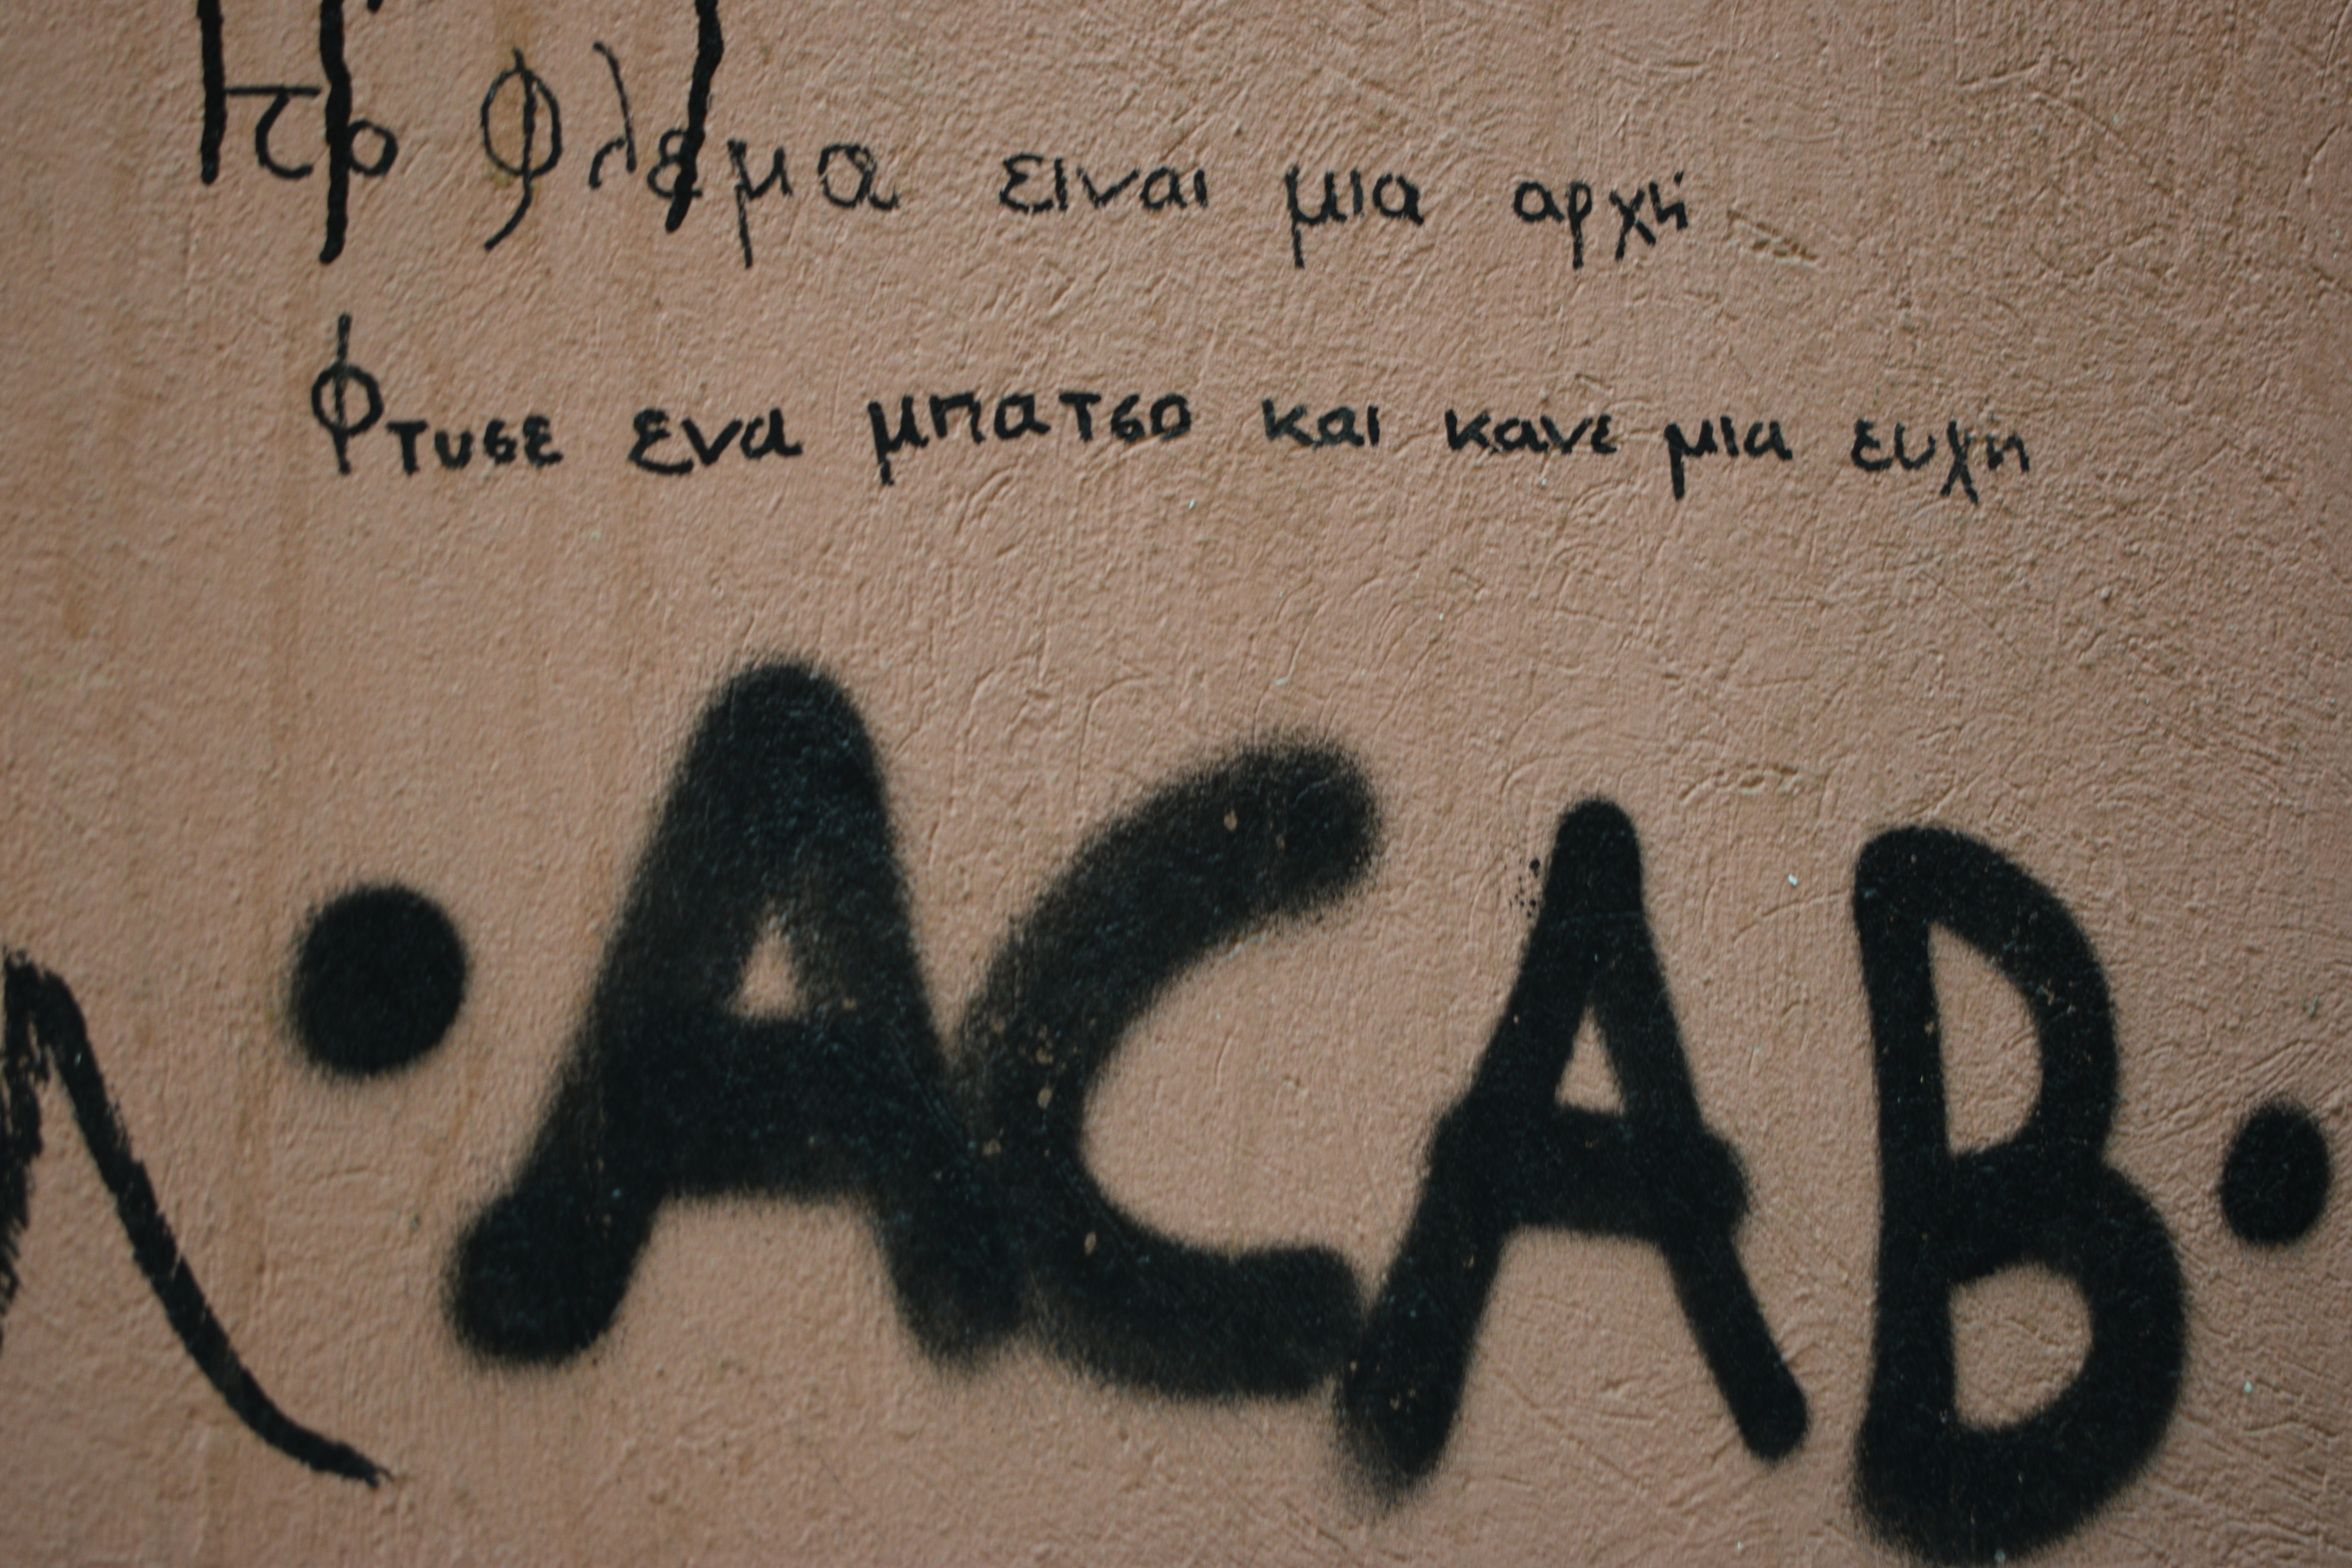 το φλεμα ειναι μια αρχή
Φτυσε ενα μπατσο και κανε μια ευχη
• ACAB •